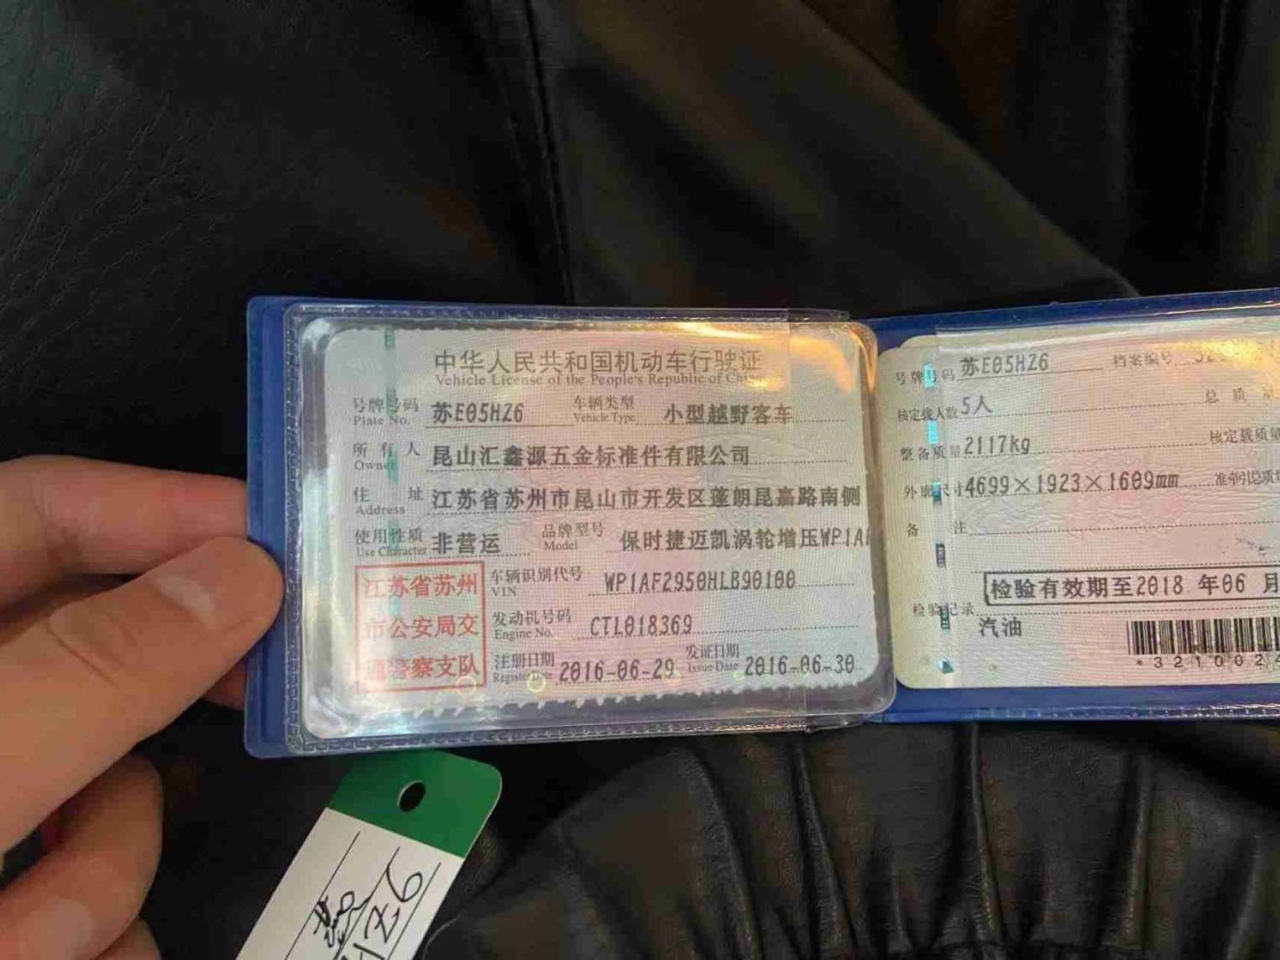 中华人民共和国机动车行驶证
Vehicle License of the People's Republic of China
号牌号码 苏E05HZ6 车辆类型 小型越野客车
Plate No. Vehicle Type
所有人 昆山汇鑫源五金标准件有限公司
Owner
住址 江苏省苏州市昆山市开发区蓬朗昆嘉路南侧
Address
使用性质 非营运 品牌型号 保时捷迈凯涡轮增压WP1A
Use Character Model
江苏省苏州
市公安局交
通警察支队
车辆识别代号 WP1AF2950HLB90100
VIN
发动机号码 CTL018369
Engine No.
注册日期 2016-06-29 发证日期 2016-06-30
Register Date Issue Date
号牌号码 苏E05HZ6 档案编号
核定载人数 5人 总质
整备质量 2117kg 核定载质量
外廓尺寸 4699×1923×1609mm 准牵引总质
备注
检验有效期至2018 年06 月
检验记录
汽油
*321002